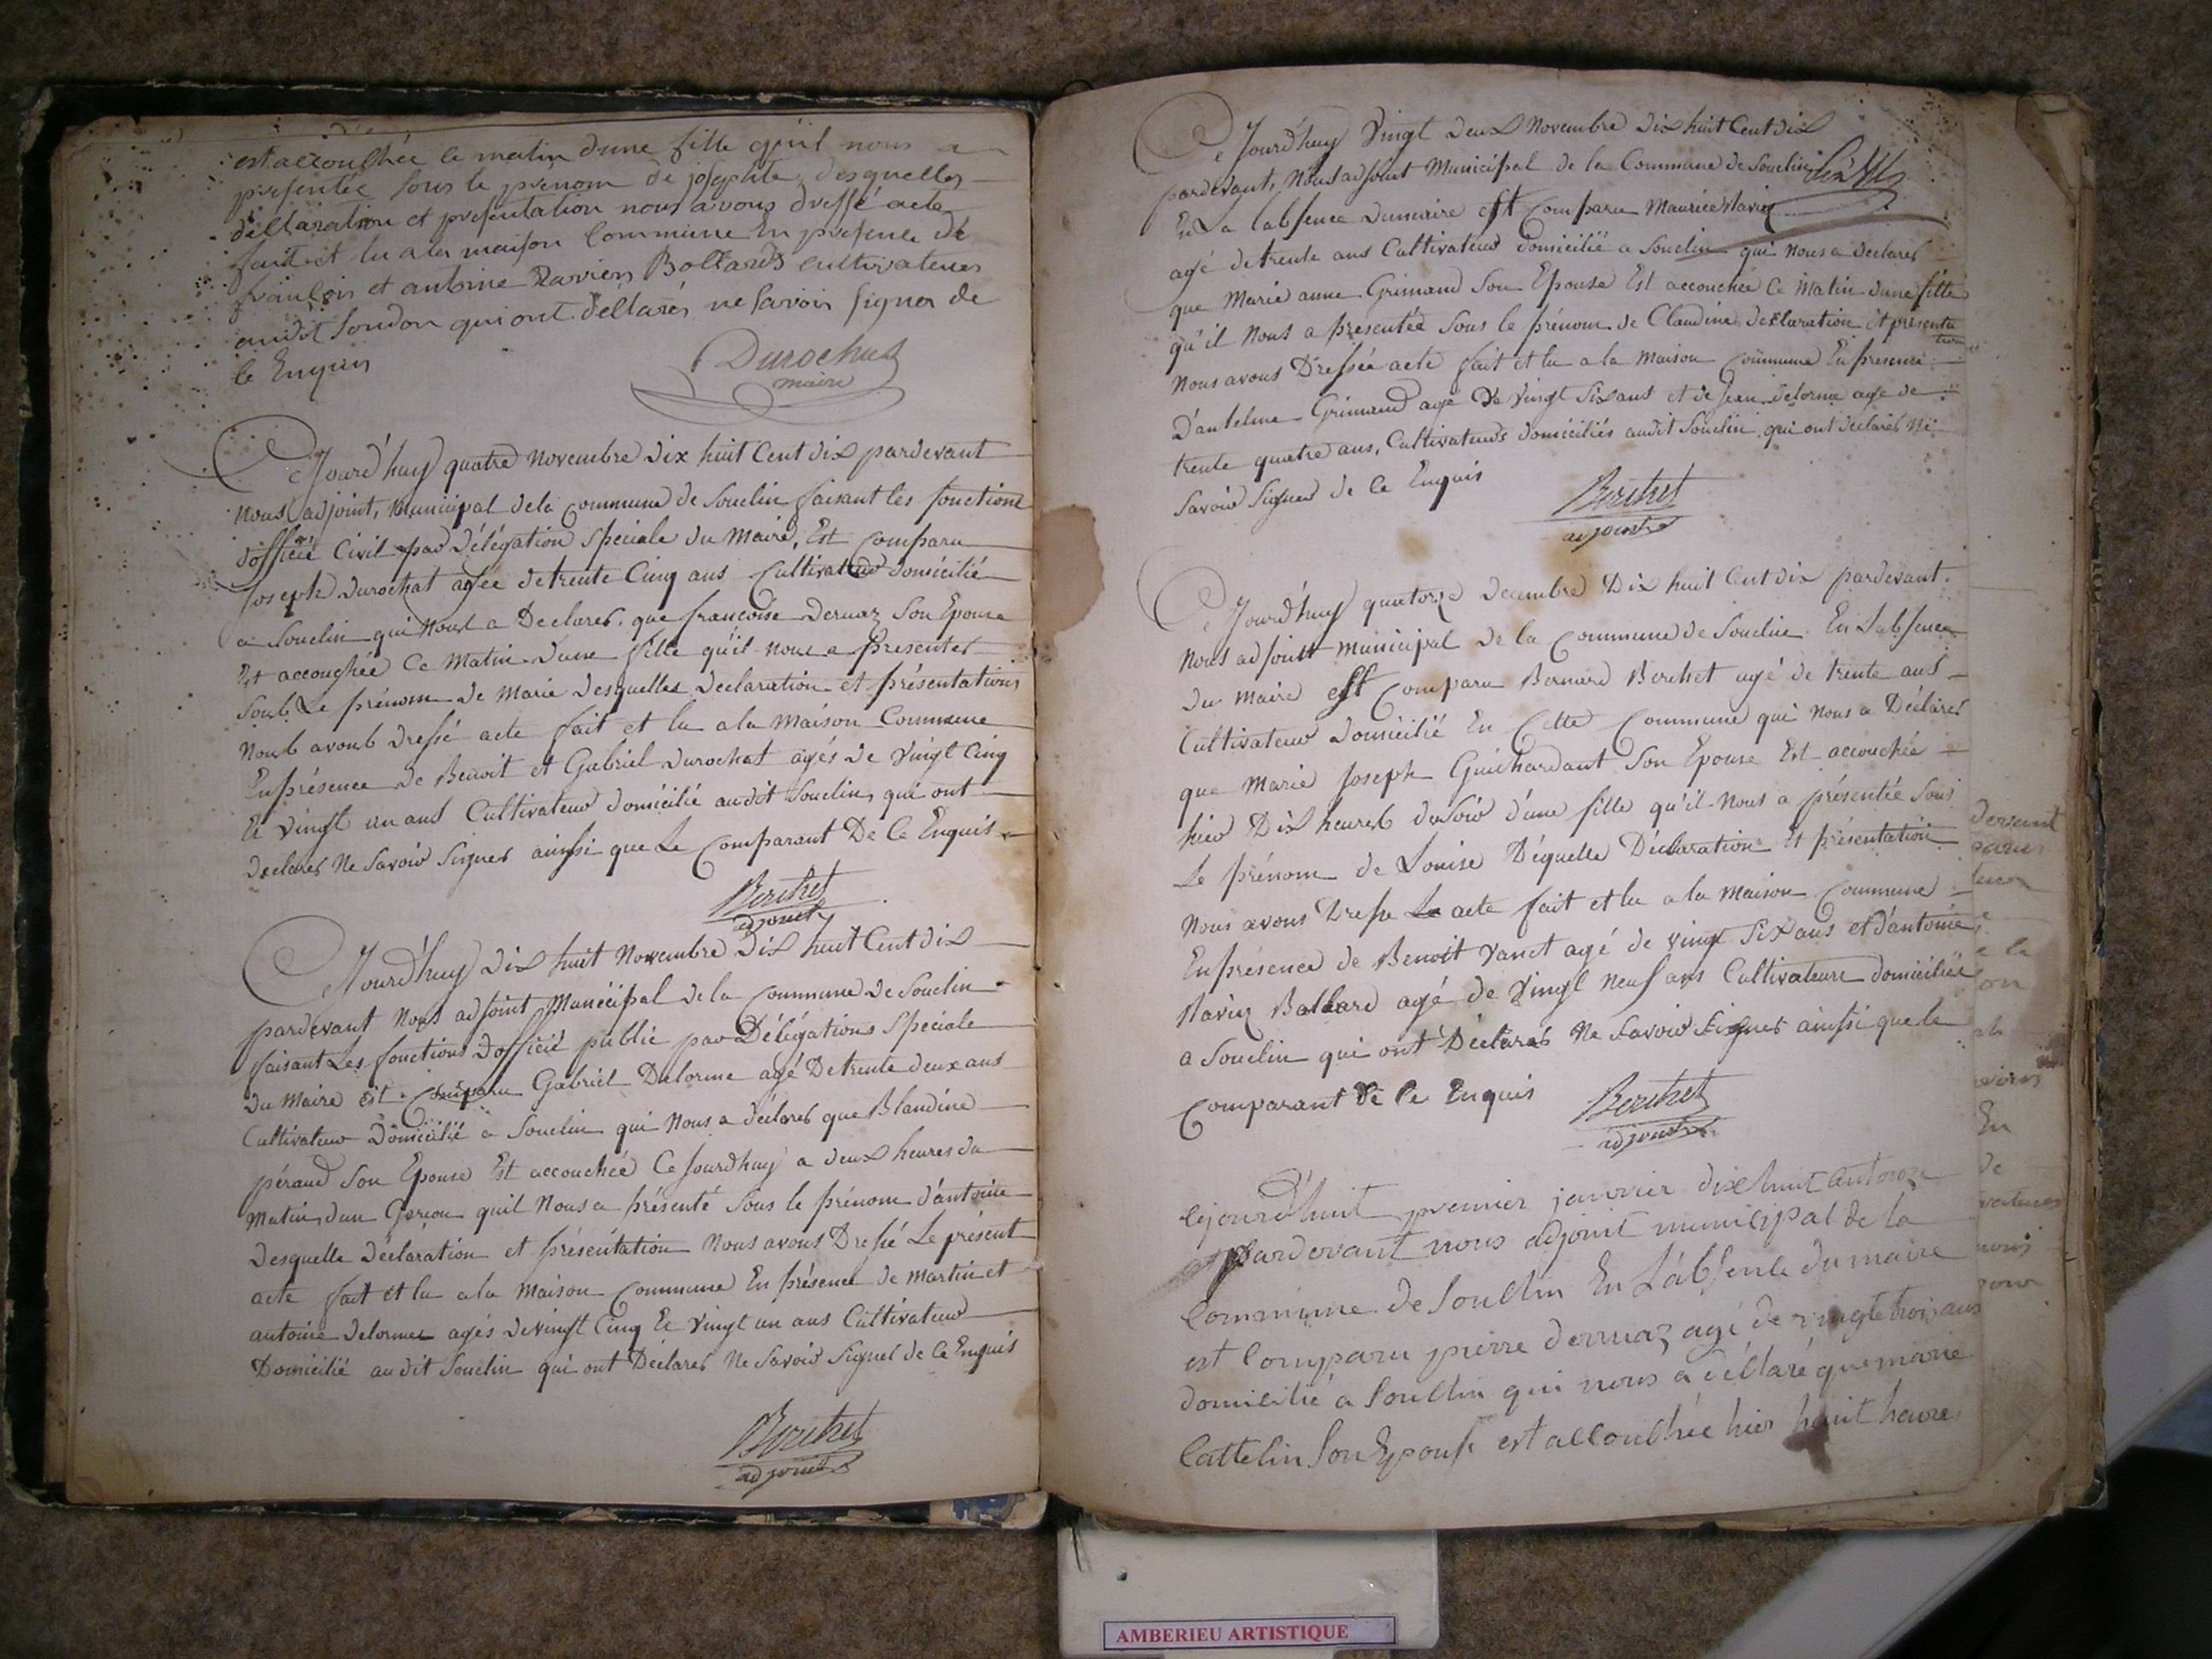 est accouchée ce matin d'une fille qu'il nous a
presentée sous le prénom de josephte, desquelles
déclaration et presentation nous avons dressé acte
fait et lu a la maison Commune En presence de
françois et antoine Ravier Bollard cultivateurs
audit Soudon qui ont déclarés ne savoir signer de
ce Enquis
Durochat
maire
Cejourd'huy quatre novembre dix huit Cent dix pardevant
nous adjoint, municipal dela Commune de Souclin faisant les fonctions
d'officié Civil par délégation Speciale du Maire, Est Comparu
Joseph Durochat agée de trente Cinq ans Cultivateur domicilié
a Souclin qui nous a Declarer que francoise Dernaz Son Epouse
Est accouchée Ce Matin d'une fille qu'il nous a presenter
Sous Le prénom de Marie desquelles Declaration et présentations
Nous avons dressé acte fait et lu a la Maison Commune
En présence de Benoit et Gabriel Durochat agés de Vingt Cinq
Et Vingt un ans Cultivateur domicilié audit Souclin, qui ont
declarer Ne Savoir Signer ainssi que Le Comparant De Ce Enquis
Berthet
adjoint
Cejourd'huy Dix huit Novembre Dix huit Cent dix
pardevant Nous adjoint Municipal de la Commune de Souclin
faisant Les fonctions d'officié public par Délégations Speciale
du Maire est Comparu Gabriel Delorme agé De trente deux ans
Cultivateur Domicilié a Souclin qui Nous a déclarer que Blandine
péraud Son Epouse Est accouchée Ce Jourdhuy a deux heures du
Matin, dun Garcon quil Nous a présenté Sous le prénom d'antoine
Desquelle Déclaration et présentation Nous avons Dressé Le présent
acte fait et lu a la Maison Commune En présence de Martin et
antoine Delorme agés de vingt Cinq Et Vingt un ans Cultivateur
Domicilié audit Souclin qui ont Déclarer Ne Savoir Signer de Ce Enquis
Berthet
adjoint
Ce Jourd'huy Vingt deux Novembre Dix huit Cent dix
pardevant, Nous adjoint Municipal de la Commune de Souclin
En La labsence dumaire est Comparu Maurice Ravier
agé de trente ans Cultivateur domicilié a Souclin qui Nous a Declarer
que Marie anne Grimaud Son Epouse Est accouchée Ce Matin dune fille
qu'il Nous a présentée Sous le prénom de Claudine déclaration et présenta
tion
Nous avons Dressée acte fait et lu a la Maison Commune En presence
D'antelme Grimaud agé De Vingt Six ans et de Jean Delorme agé de
trente quatre ans, Cultivateurs domiciliés audit Souclin qui ont déclarer Ne
Savoir Signer de Ce Enquis
Berthet
adjoint
Ce Jourdhuy quatorze Decembre Dix huit Cent dix pardevant
Nous adjoint municipal de la Commune de Souclin En Labsence
Du Maire est Comparu Bernard Berthet agé de trente ans
Cultivateur Domicilié En Cette Commune qui Nous a Déclarer
que Marie Joseph Guichardant Son Epouse Est accouchée
hier Dix heures du Soir d'une fille qu'il Nous a présentée Sous
Le prénom de Louise Déquelle Déclaration Et présentation
Nous avons Dresse Le acte fait et lu a la Maison Commune
En présence de Benoit Vanet agé de vingt Six ans et d'antoine
Ravier Ballard agé de Vingt Neuf ans Cultivateurs domiciliés
a Souclin qui ont Déclarer Ne Savoir Signer ainssi que le
Comparant De Ce Enquis
Berthet
adjoint
Cejourd'huit premier janvier dix huit Cent onze
pardevant nous adjoint municipal de la
Commune de Souclin En L'absence du maire
est Comparu pierre dernaz agé de vingt trois ans
domicilié a Souclin qui nous a déclaré que marie
Cattelin Son Epouse est accouchée hier huit heure
AMBERIEU ARTISTIQUE